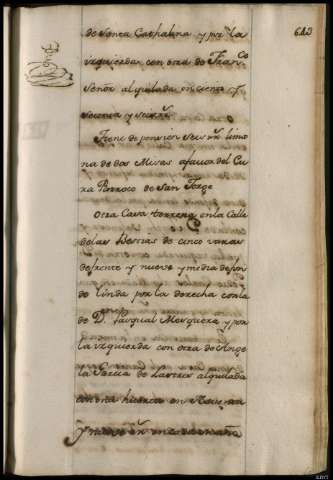 643
de Santa Cathalina y por la
izquierda con otra de Franco
Señor alquilada en ciento y
setenta y seis rs.
Tiene de pension seis rs. limo
na de dos Misas afavor del Cu
ra Parroco de San Jorge
Otra Casa terrena en la Calle
de las Bestias de cinco varas
de frente y nueve y media de fon
do linda por la derecha con la
de Dn. Pasqual Mosquera y por
la izquierda con otra de Ange
la Garcia de Larrea alquilada
con una huerta en Noventa
y nueve rs.